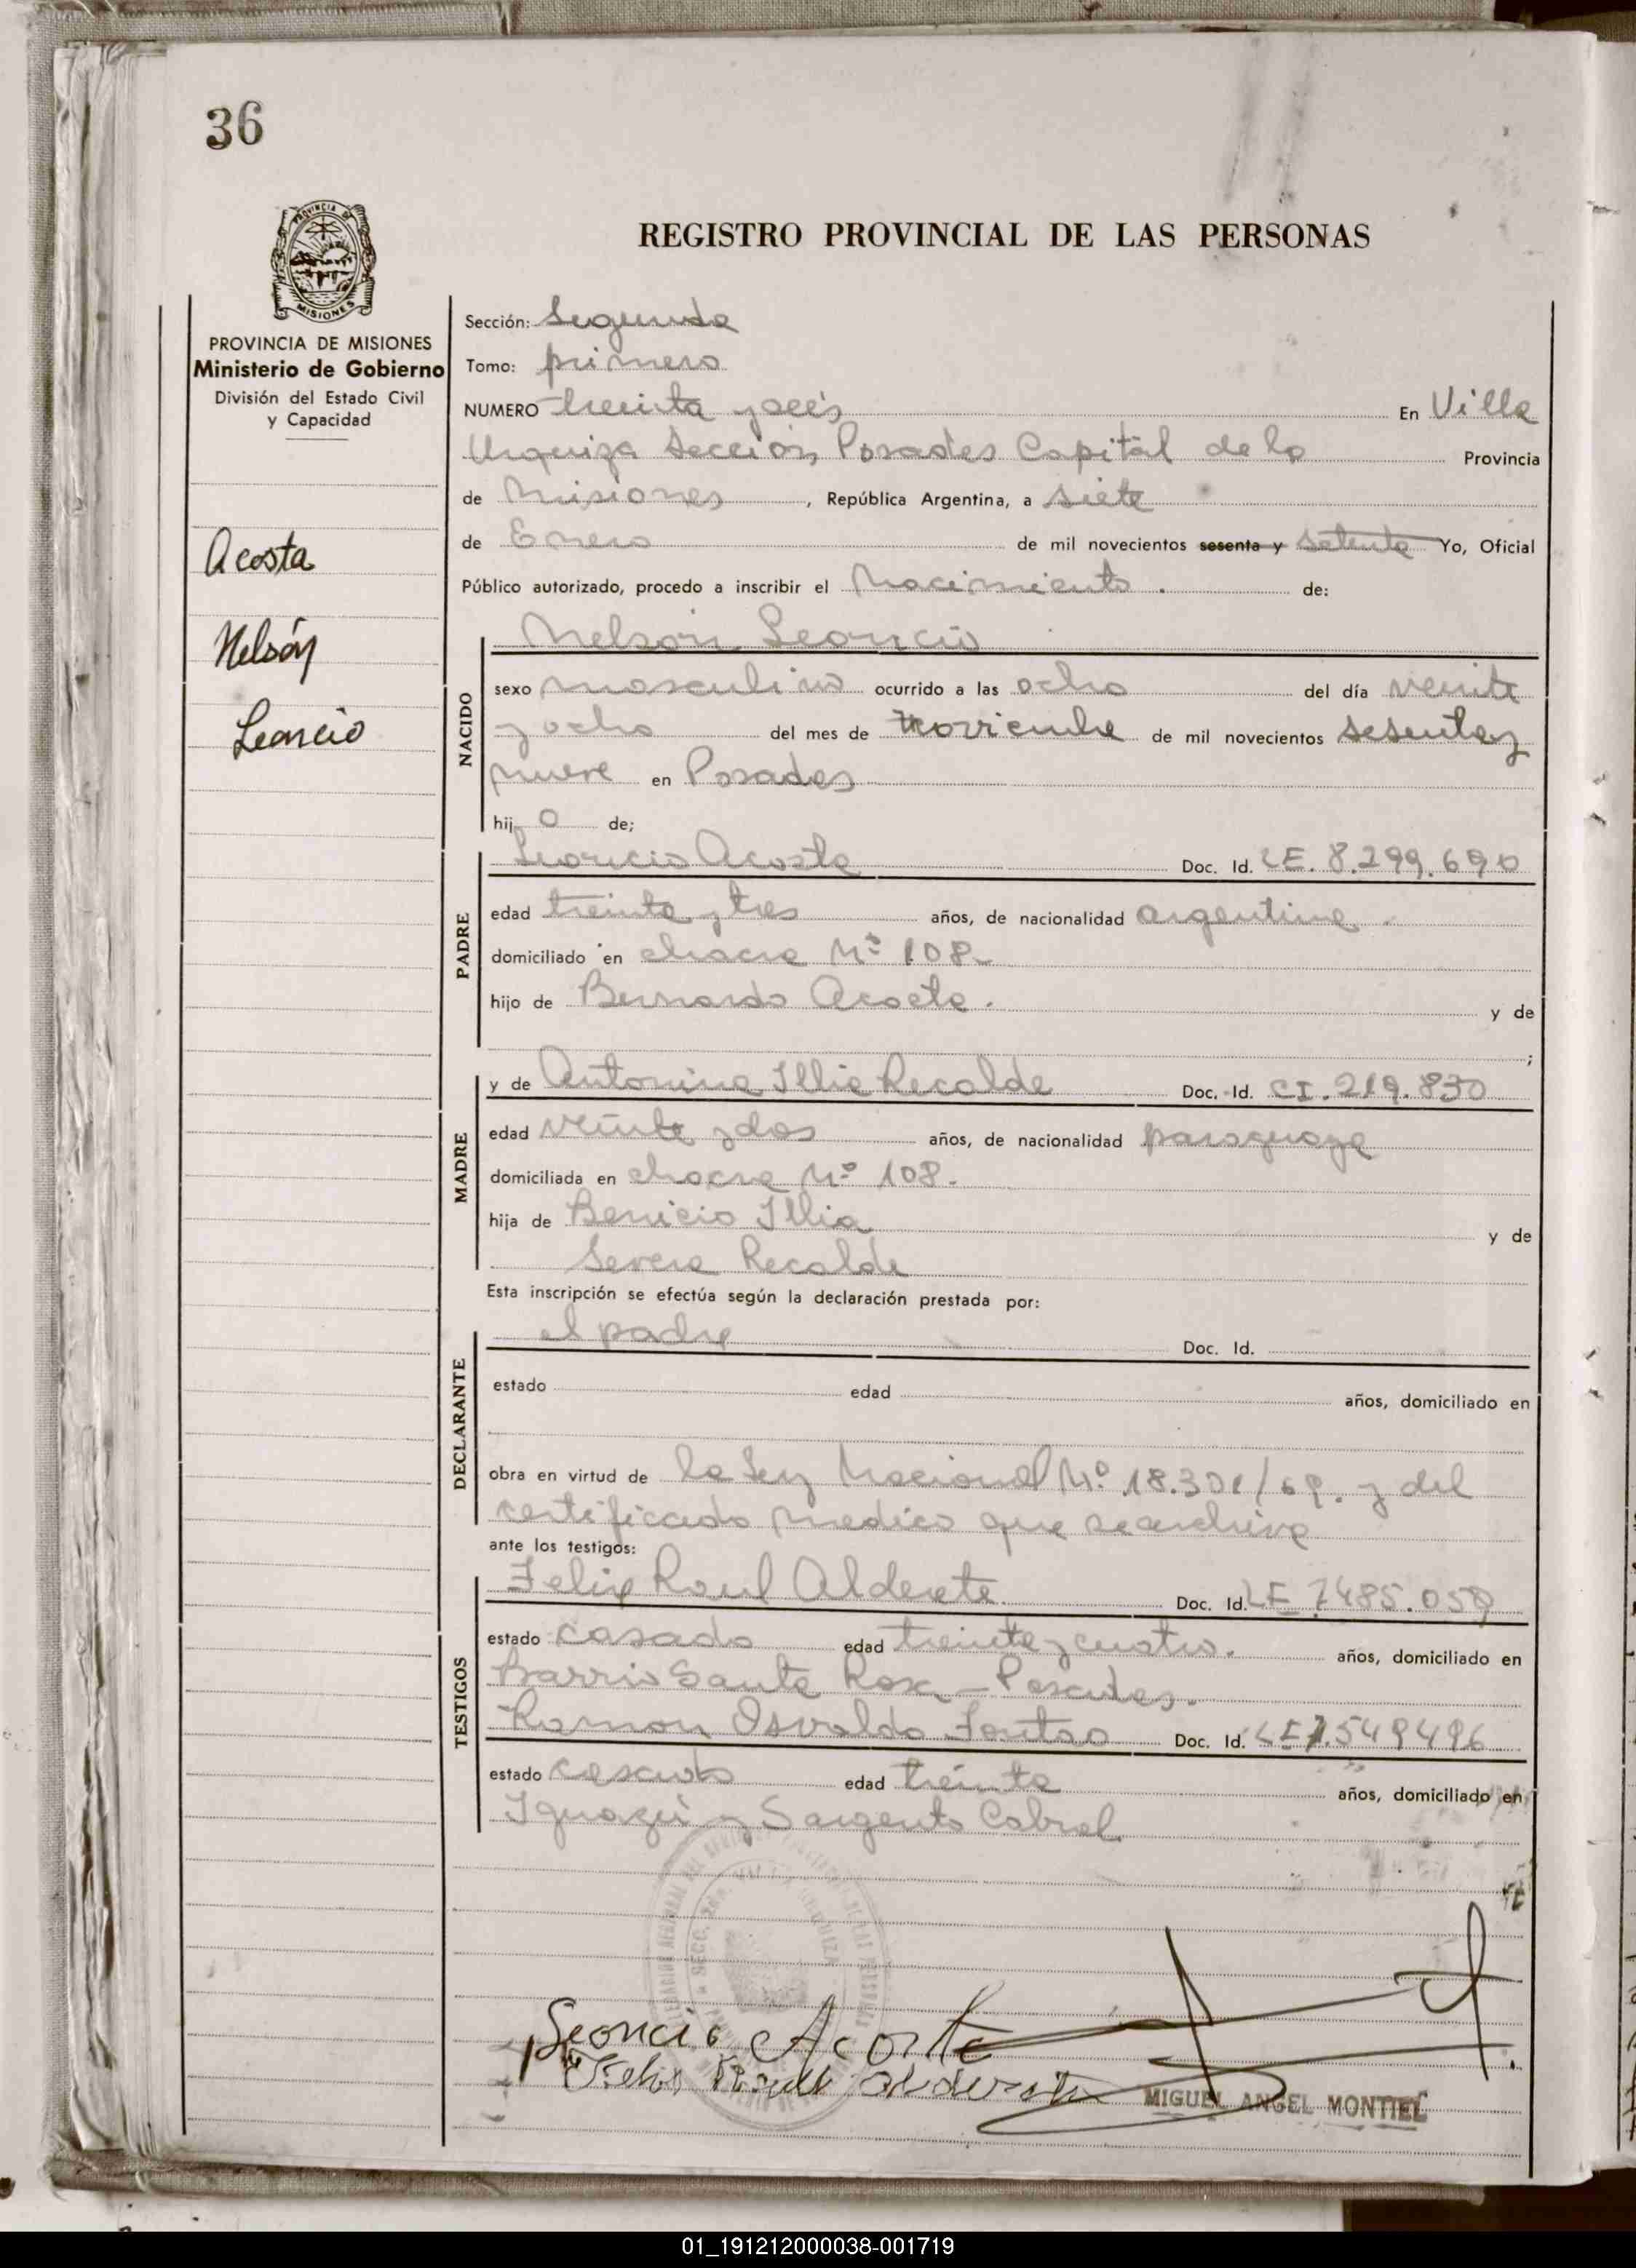 36
PROVINCIA DE
MISIONES
PROVINCIA DE MISIONES
Ministerio de Gobierno
División del Estado Civil
y Capacidad
Acosta
Nelsón
Leoncio
REGISTRO PROVINCIAL DE LAS PERSONAS
Sección: Segunda
Tomo: primero
NUMERO treinta y seis En Villa
Urquiza Sección Posadas Capital de la Provincia
de Misiones, República Argentina, a siete
de Enero de mil novecientos sesenta y setenta Yo, Oficial
Público autorizado, procedo a inscribir el Nacimiento. de:
Nelson Leoncio
NACIDO
sexo masculino ocurrido a las ocho del día veinte
y ocho del mes de noviembre de mil novecientos sesenta y
nueve en Posadas
hij o de;
PADRE
Leoncio Acosta Doc. Id. LE. 8.299.690
edad treinta y tres años, de nacionalidad argentina.
domiciliado en chacra Nº 108.
hijo de Bernardo Acosta. y de
;
MADRE
y de Antonina Illia Recalde Doc. Id. CI. 219.830
edad veinte y dos años, de nacionalidad paraguaya
domiciliada en chacra Nº 108.
hija de Benicio Illia y de
Severa Recalde
Esta inscripción se efectúa según la declaración prestada por:
DECLARANTE
el padre Doc. Id.
estado edad años, domiciliado en
obra en virtud de la Ley Nacional Nº 18.301/69. y del
certificado medico que se archiva
ante los testigos:
TESTIGOS
Felix Raul Alderete Doc. Id. LE 7485.059
estado casado edad treinta y cuatro. años, domiciliado en
Barrio Santa Rosa - Posadas.
Ramon Osvaldo Doc. Id. LE 7.549496
estado casado edad treinta años, domiciliado en
Iguazú y Sargento Cabral
Leoncio Acosta
Felix Raul Alderete
MIGUEL ANGEL MONTIEL
01_191212000038-001719